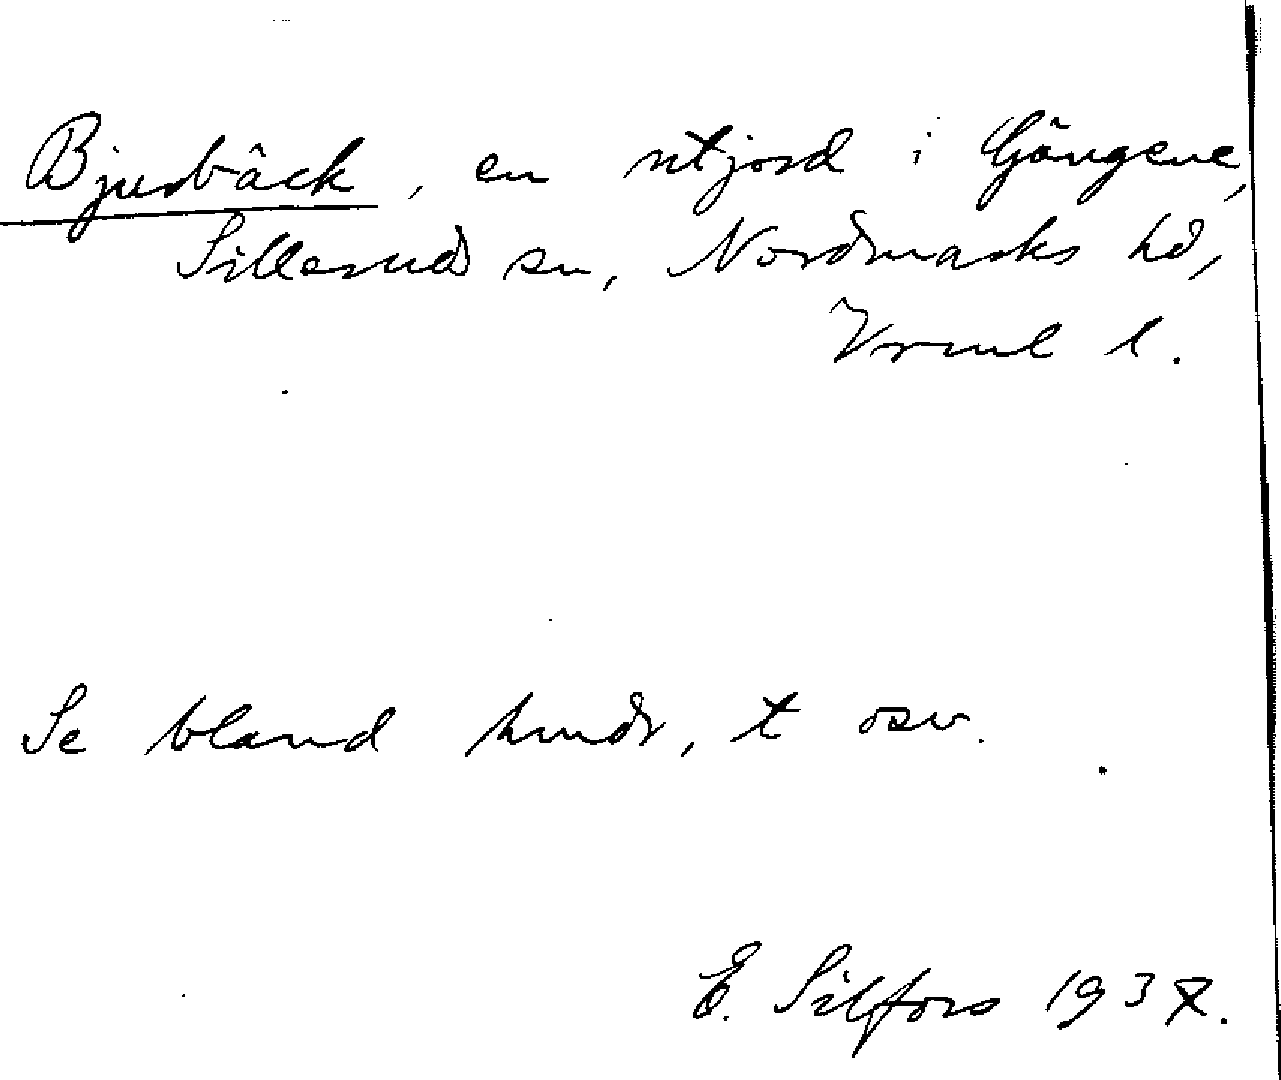 Bjurbäck, en utjord i Gängene,
Silleruds sn, Nordmarks hd,
Vrml l.
Se bland hmdr, t osv.
E. Silfors 1937.